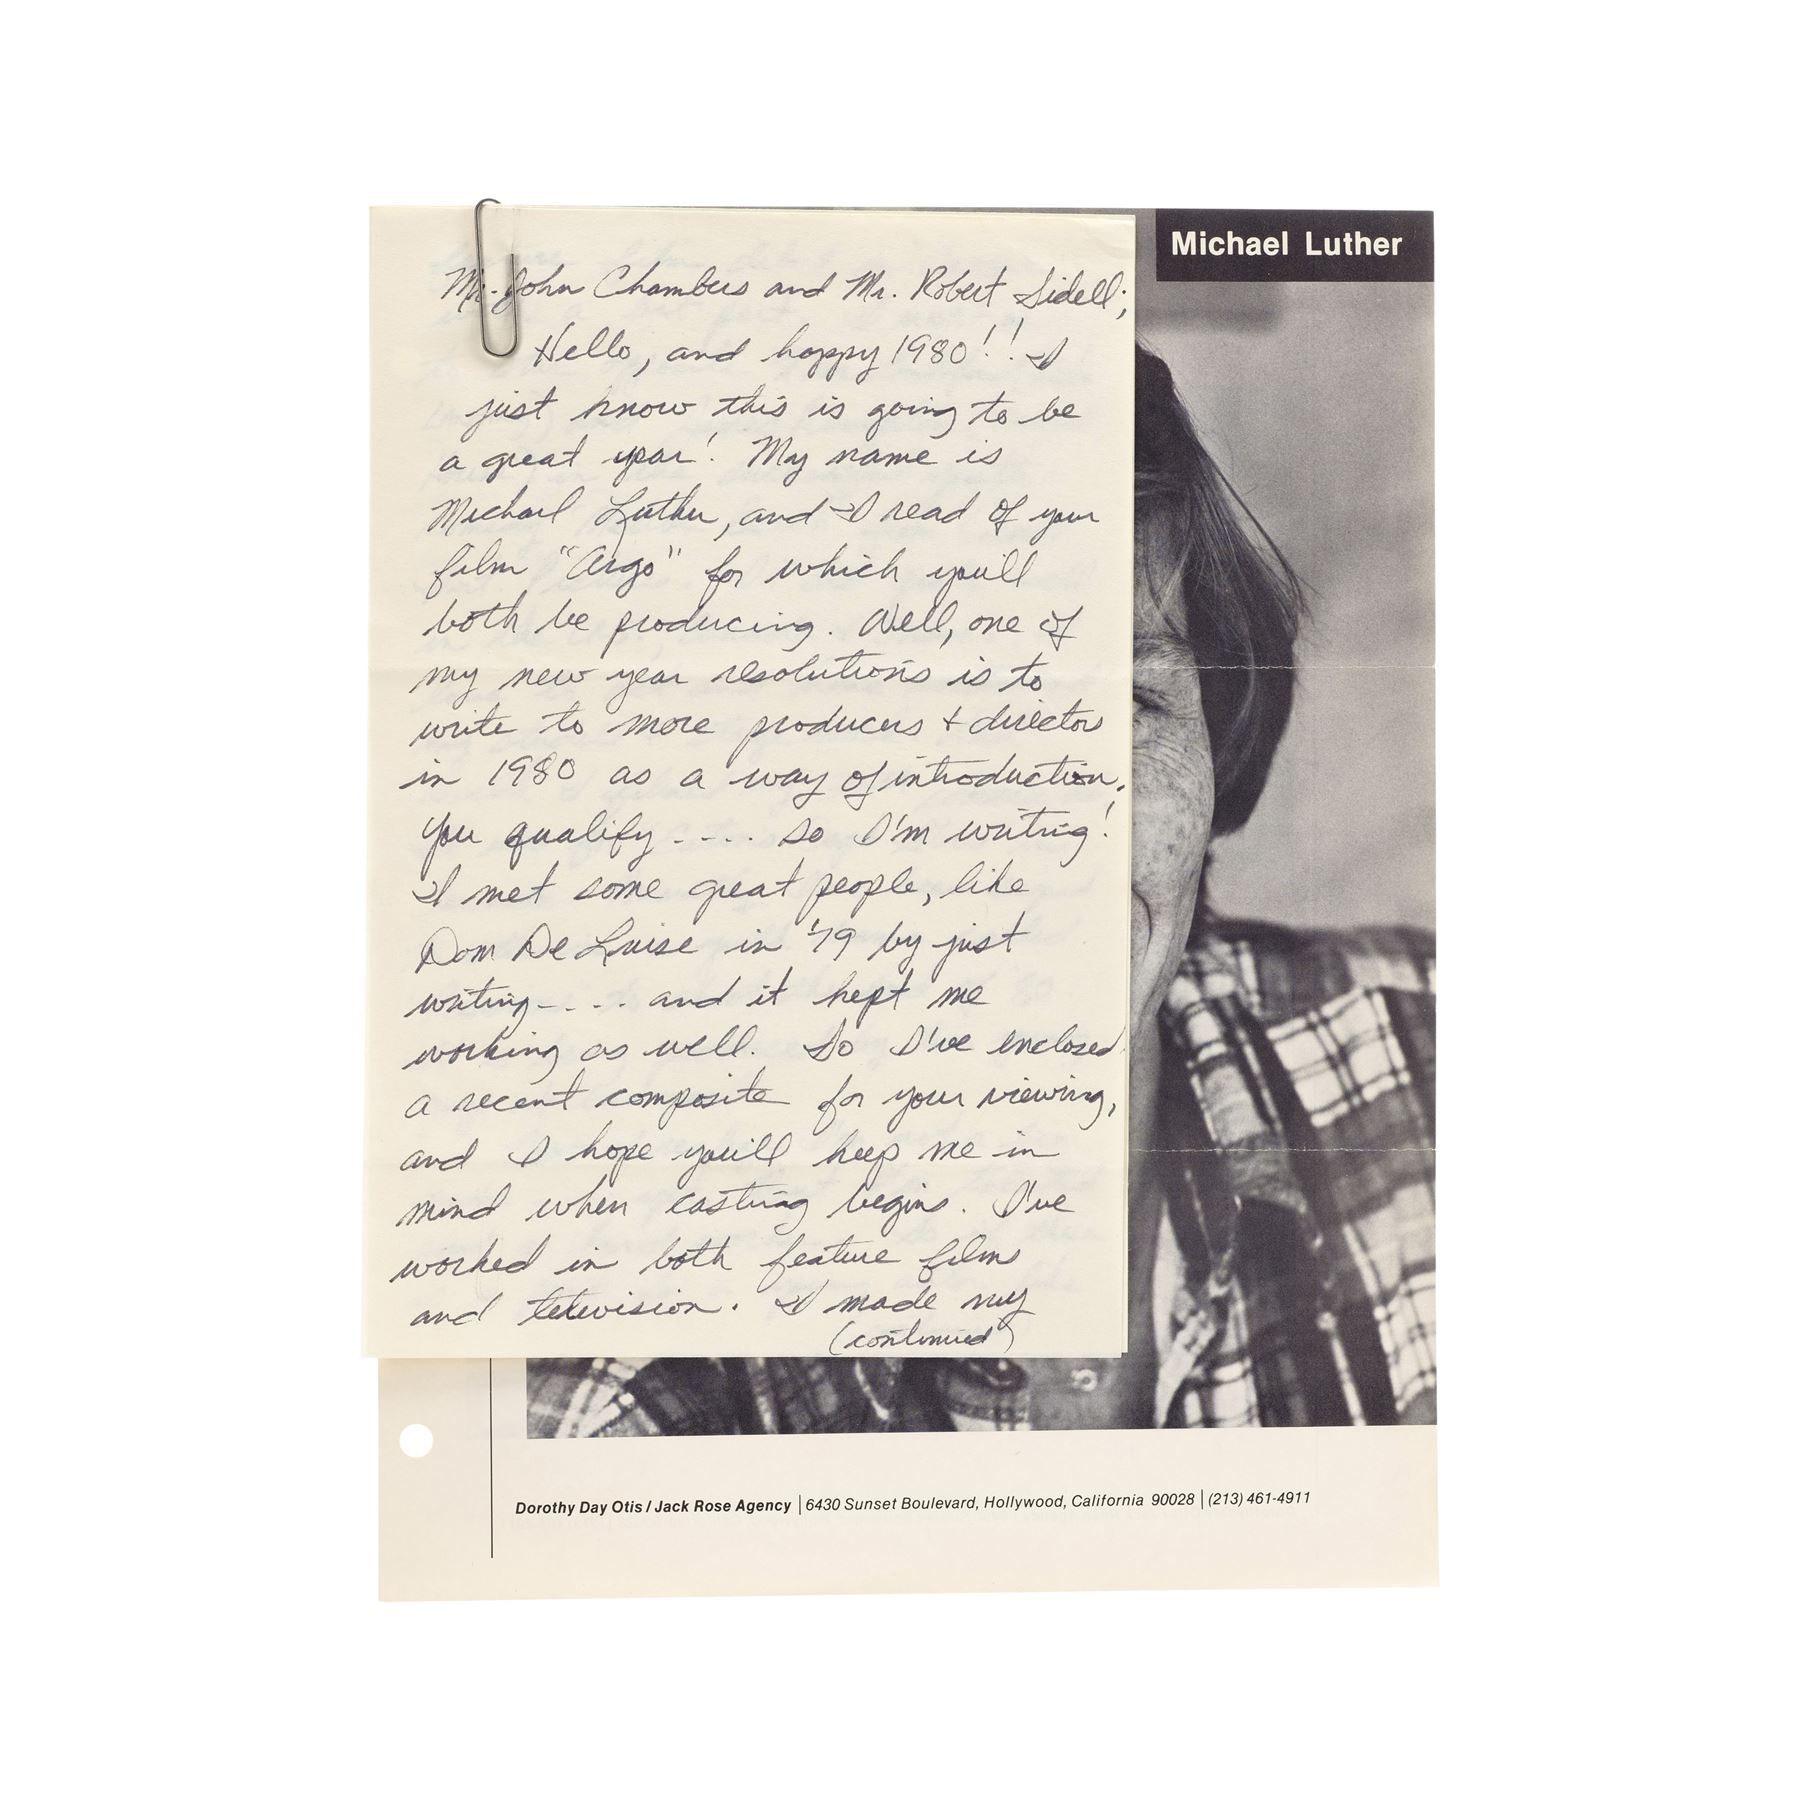 Mr. John Chambers and Mr. Robert Sidell;
Hello, and happy 1980!! I
just know this is going to be
a great year! My name is
Michael Luther, and I read of your
film "Argo" for which you'll
both be producing. Well, one of
my new year resolutions is to
write to more producers + directors
in 1980 as a way of introduction.
You qualify .... so I'm writing!
I met some great people, like
Dom De Luise in '79 by just
writing.... and it kept me
working as well. So I've enclosed
a recent composite for your viewing,
and I hope you'll keep me in
mind when casting begins. I've
worked in both feature films
and television. I made my
(continued)
Michael Luther
Dorothy Day Otis / Jack Rose Agency | 6430 Sunset Boulevard, Hollywood, California 90028 | (213) 461-4911